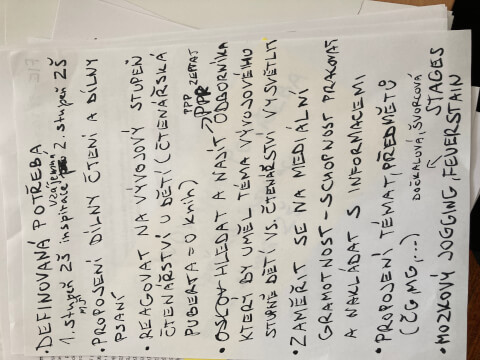 • DEFINOVANÁ POTŘEBA
vzájemná
1. stupeň ZŠ inspirace 2. stupeň ZŠ
MJ
• PROPOJENÍ DÍLNY ČTENÍ A DÍLNY
PSANÍ
• REAGOVAT NA VÝVOJOVÝ STUPEŇ
ČTENÁŘSTVÍ U DĚTÍ (ČTENÁŘSKÁ
PUBERTA = 0 KNIH)
PPP ZEPTAT
PPR
• OSLOV HLEDAT A NAJÍT ODBORNÍKA
KTERÝ BY UMĚL TÉMA VÝVOJOVÉHO
STUPNĚ DĚTÍ VS. ČTENÁŘSTVÍ VYSVĚTLIT
• ZAMĚŘIT SE NA MEDIÁLNÍ
GRAMOTNOST - SCHOPNOST PRACOVAT
A NAKLÁDAT S INFORMACEMI
• PROPOJENÍ TÉMAT, PŘEDMĚTŮ
(ČG MG,...)
DOČKALOVÁ, ŠVORCOVÁ
STAGES
• MOZKOVÝ JOGGING, FEUERSTAIN